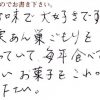 のでお書き下さい。
味で大好きです
あん巣ごもりを
っていて、毎年食べて
いお菓子をこれ
下さい。